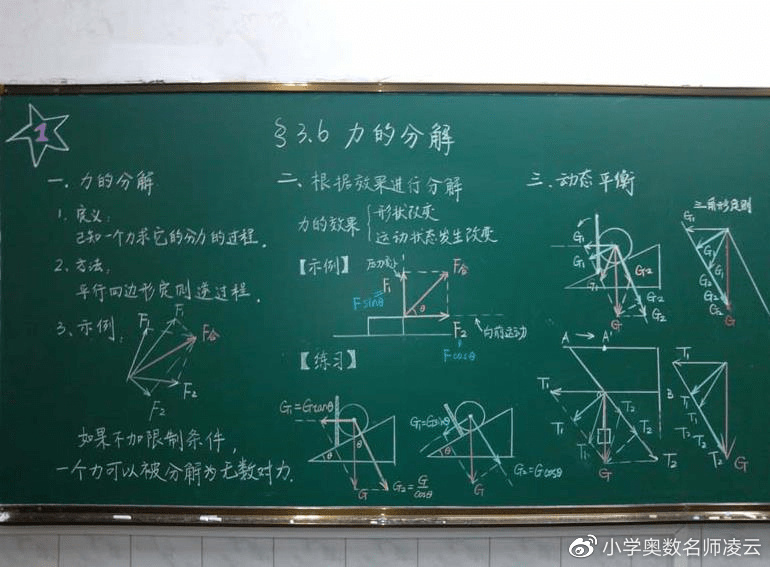 1
§3.6 力的分解
一、力的分解
1. 定义:
已知一个力求它的分力的过程.
2. 方法:
平行四边形定则逆过程.
3. 示例:
F₁
F₁
F合
F₂
F₂
如果不加限制条件,
一个力可以被分解为无数对力.
二、根据效果进行分解
力的效果
形状改变
运动状态发生改变
【示例】
F₁
F合
Fsinθ
θ
F₂
向前运动
Fcosθ
【练习】
G₁=Gtanθ
θ
θ
G
G₂=G/cosθ
G₁=Gsinθ
θ
θ
G
G₂=Gcosθ
三、动态平衡
三角形定则
G₁
G₁
G₁
G₂
G₂
G₂
G
G₁
G₁
G₁
G₂
G₂
G₂
G
A → A'
B
T₁
T₁
T₁
T₂
T₂
T₂
G
T₁
T₁
T₁
T₂
T₂
T₂
G
@小学奥数名师凌云